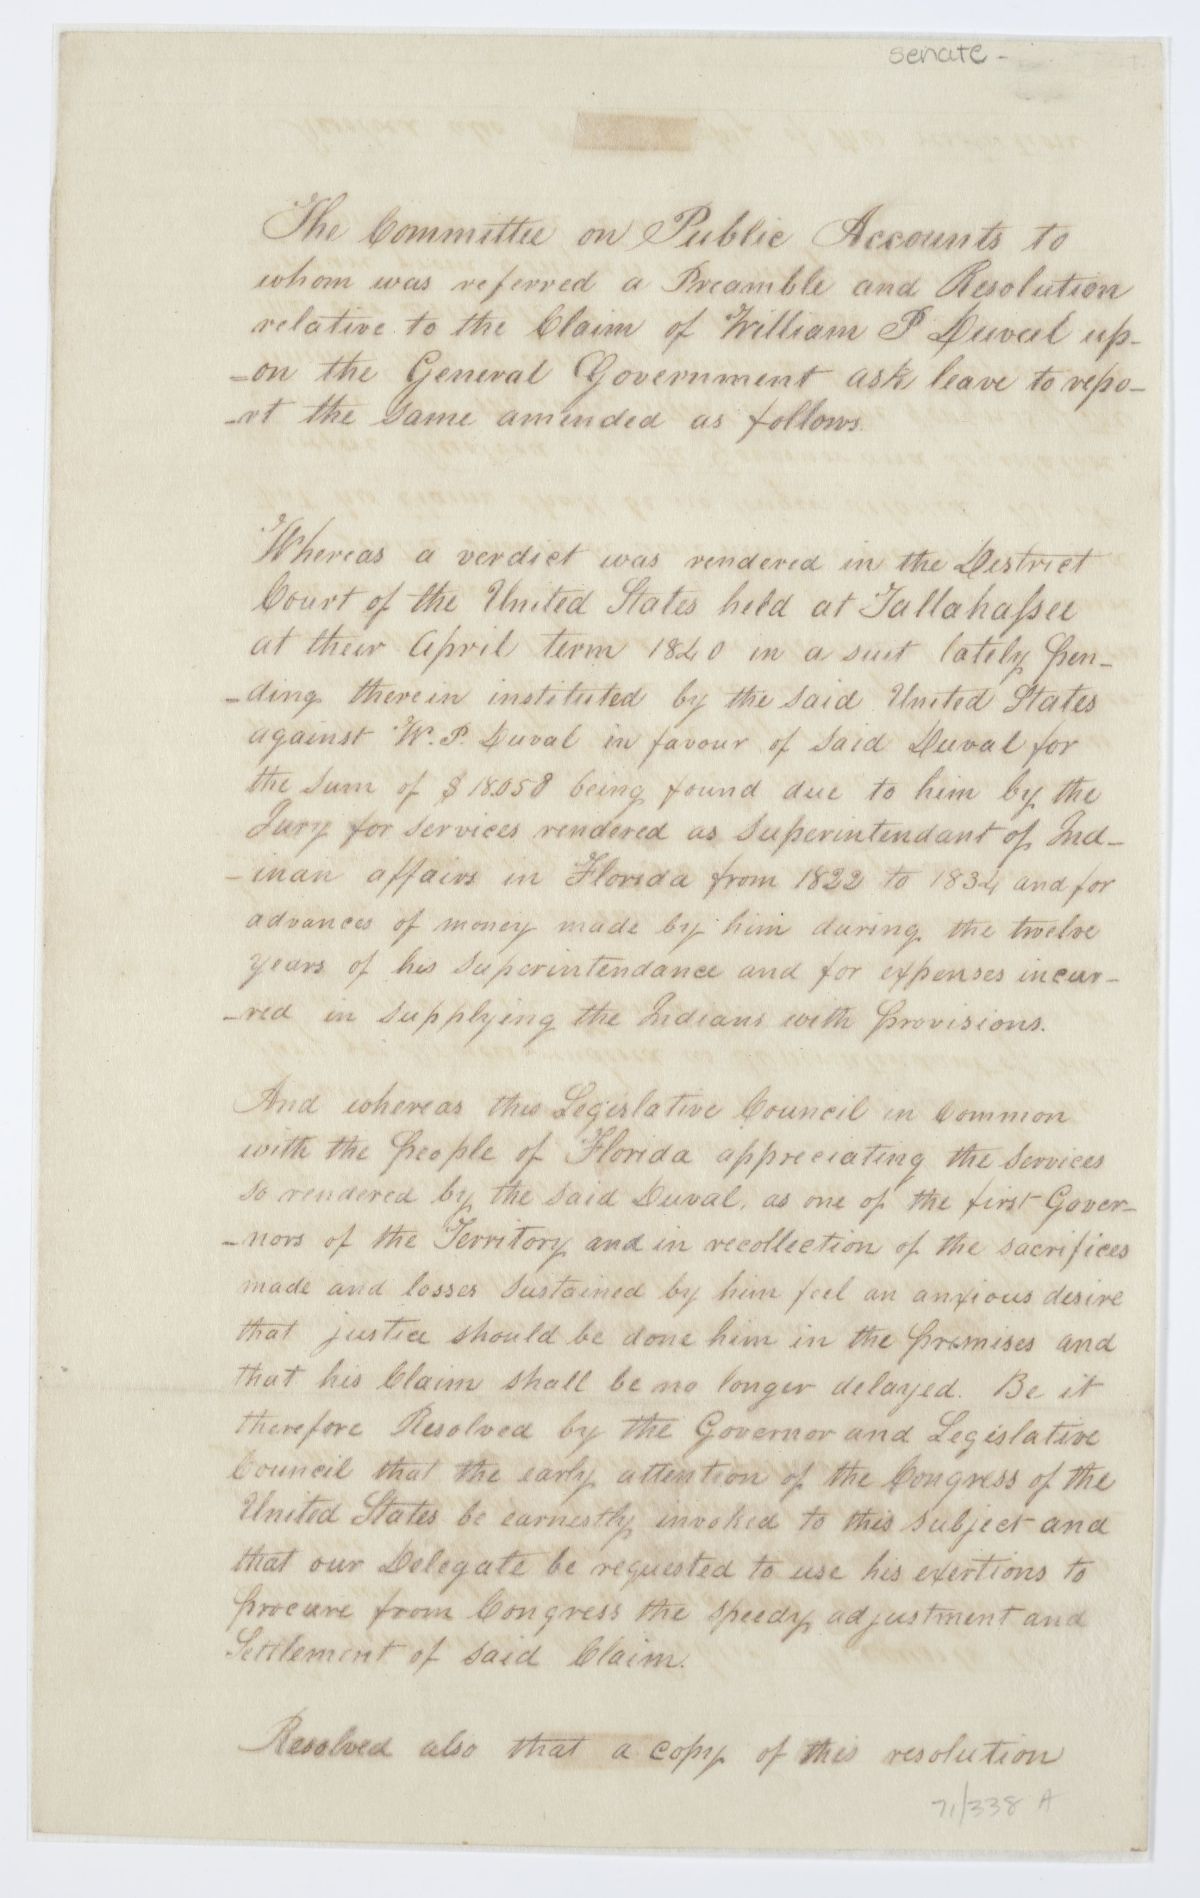 senate -
The Committee on Public Accounts to
whom was referred a Preamble and Resolution
relative to the Claim of William P Duval up-
-on the General Government ask leave to repo-
-rt the same amended as follows.
Whereas a verdict was rendered in the District
Court of the United States held at Tallahassee
at their April term 1840 in a suit lately pen-
-ding therein instituted by the said United States
against W. P. Duval in favour of said Duval for
the sum of $18.058 being found due to him by the
Jury for services rendered as Superintendant of Ind-
-inan affairs in Florida from 1822 to 1834 and for
advances of money made by him during the twelve
years of his Superintendance and for expenses incur-
-red in supplying the Indians with provisions.
And whereas this Legislative Council in Common
with the people of Florida appreciating the services
so rendered by the said Duval, as one of the first Gover-
-nors of the Territory and in recollection of the sacrifices
made and losses sustained by him feel an anxious desire
that justice should be done him in the premises and
that his Claim shall be no longer delayed. Be it
therefore Resolved by the Governor and Legislative
Council that the early attention of the Congress of the
United States be earnestly invoked to this subject and
that our Delegate be requested to use his exertions to
procure from Congress the speedy adjustment and
Settlement of said Claim.
Resolved also that a copy of this resolution
71/338 A